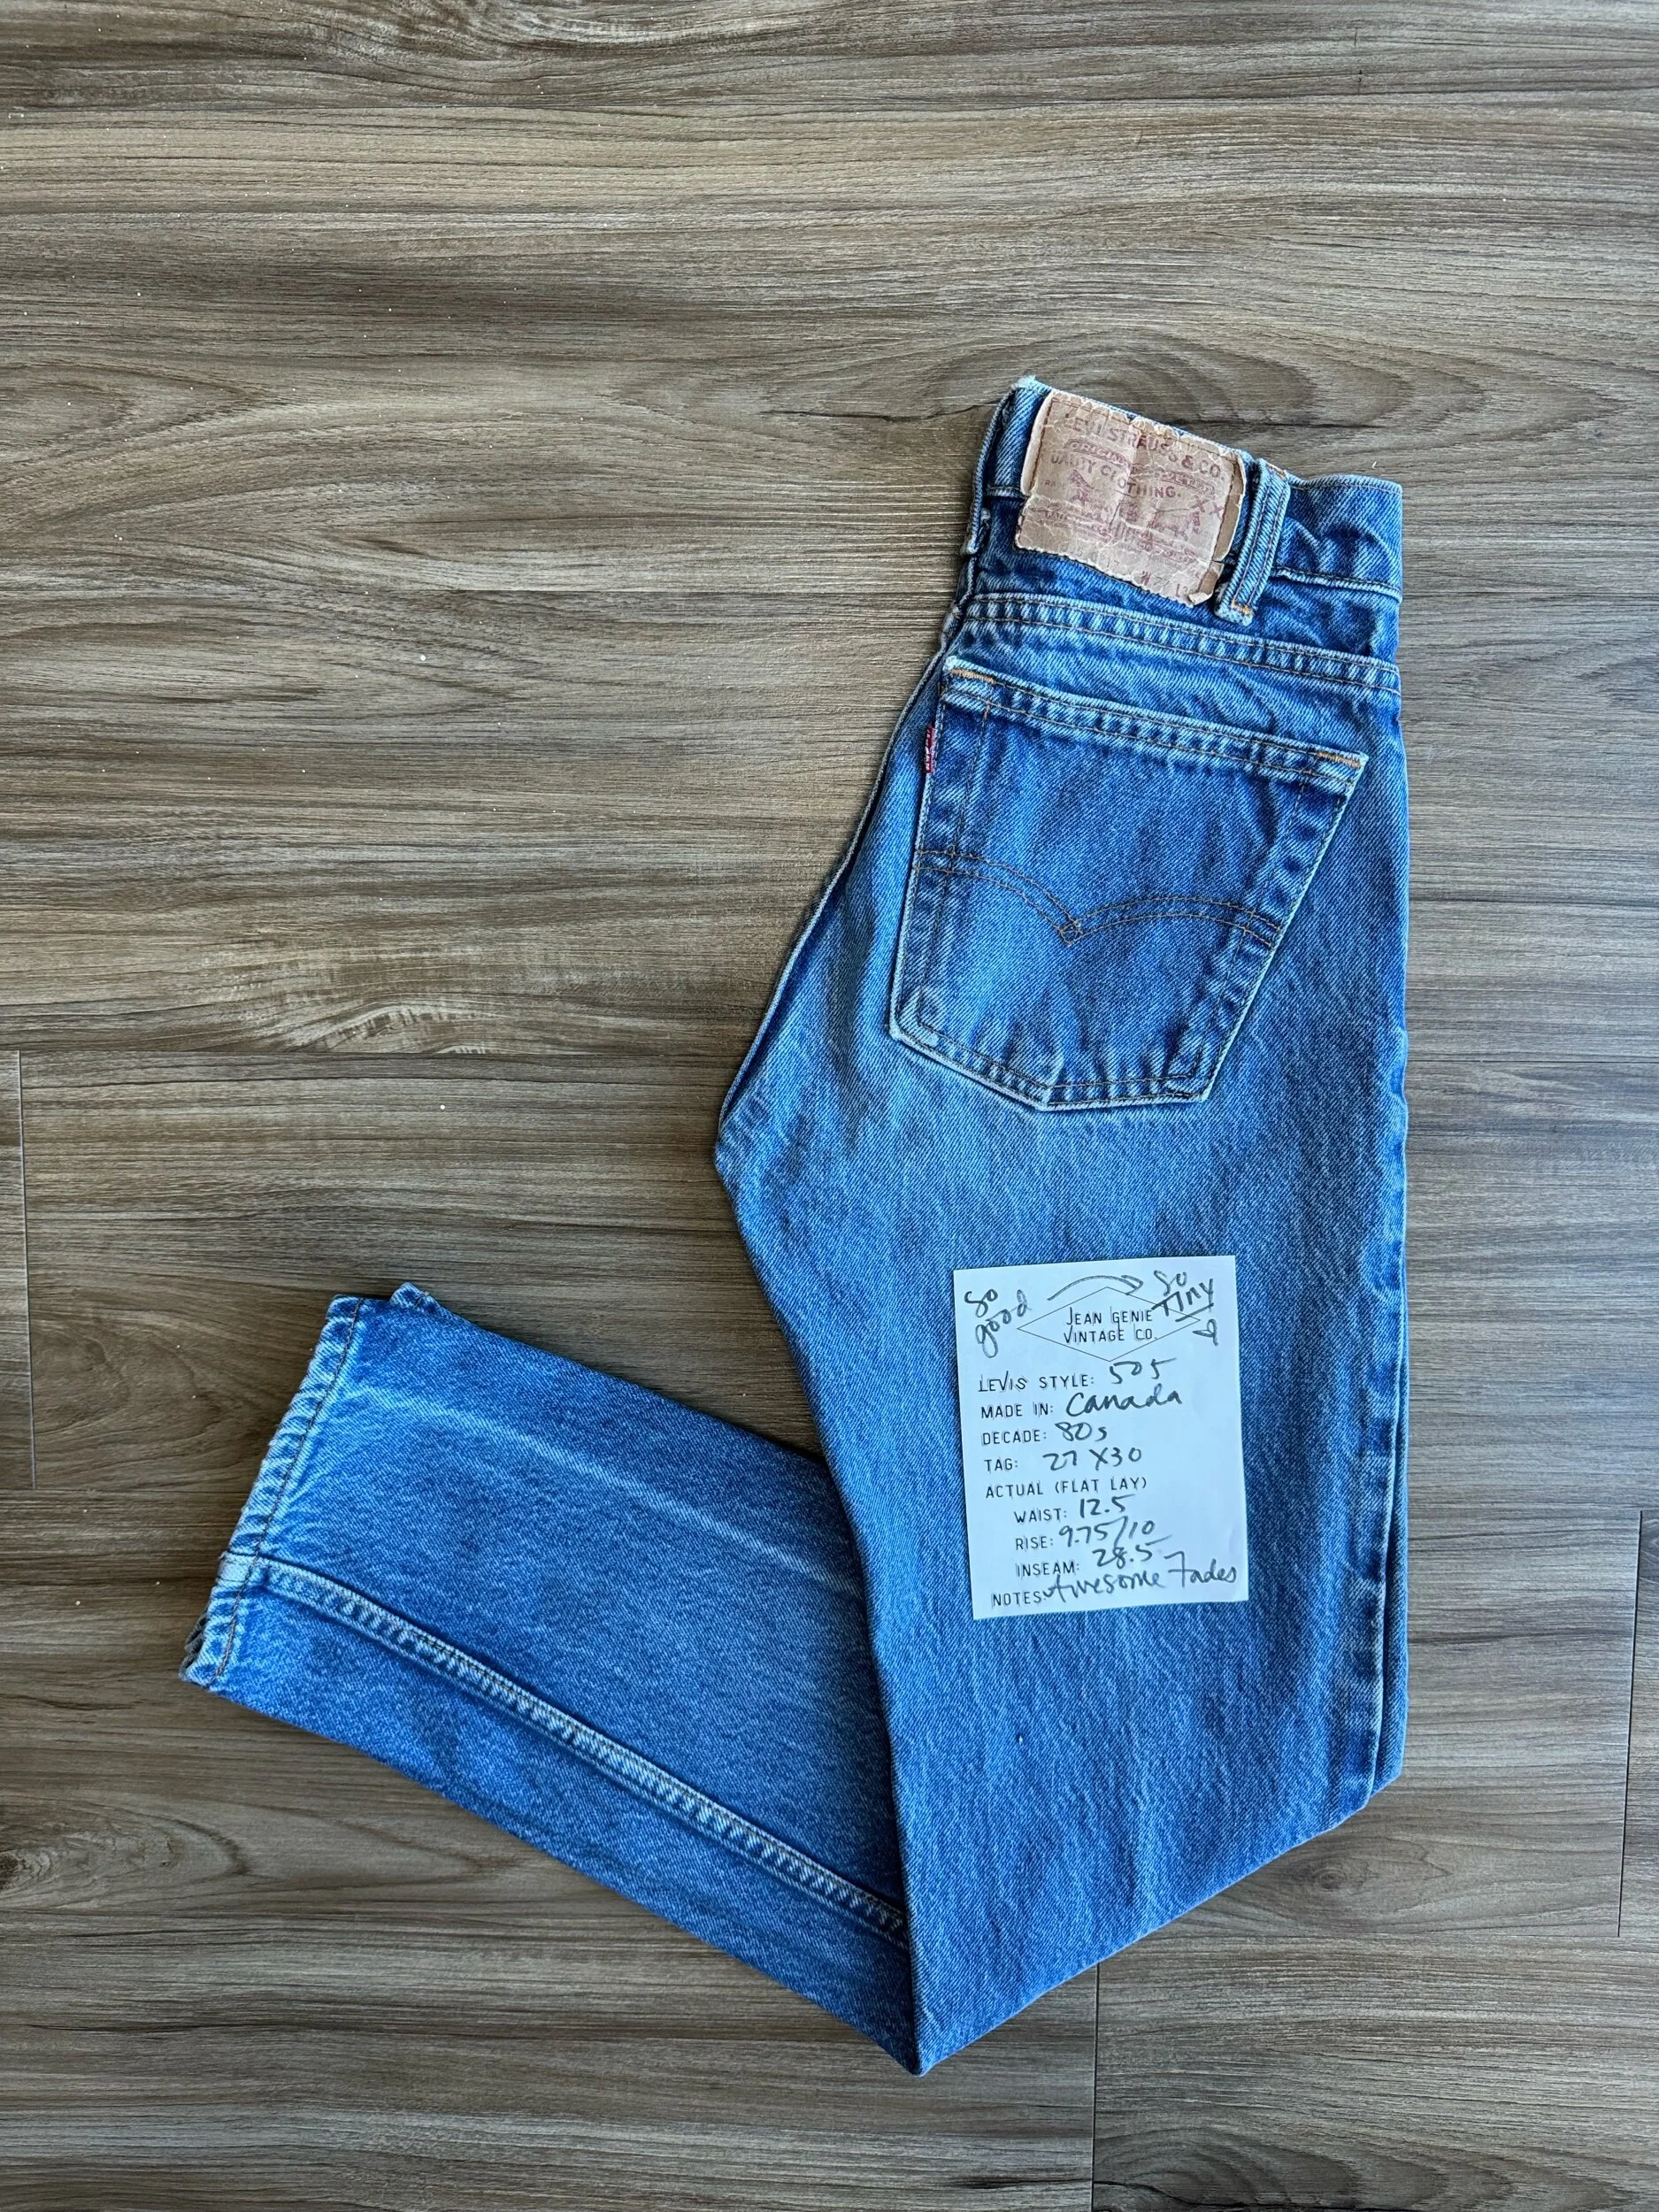 LEVI STRAUSS & CO.
QUALITY CLOTHING.
XX
So good
So Tiny
JEAN GENIE
VINTAGE CO.
LEVIS STYLE: 505
MADE IN: Canada
DECADE: 80s
TAG: 27 X30
ACTUAL (FLAT LAY)
WAIST: 12.5
RISE: 9.75/10
INSEAM: 28.5
NOTES: Awesome Fades